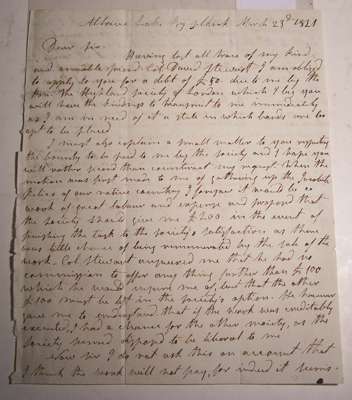 Altrive Lake By Selkirk March 23d 1821
Dear Sir.
Having lost all trace of my kind
and amiable friend Col. David Stewart I am obliged
to apply to you for a debt of £50. due to me by the
Hon. The Highland Society of London which I beg you
will have the kindness to transmit to me immediately
as I am in need of it a state in which bards are too
apt to be placed
I must also explain a small matter to you respecting
the bounty to be paid to me by the society and I hope you
will rather second than countenance my request. When the
motion was first made to me of gathering up the Jacobite
Relics of our native country I foresaw it would be a
work of great labour and expense and proposed that
the society should give me £200 in the event of
finishing the task to the society's satisfaction as there
was little chance of being remunerated by the sale of the
work. Col Stewart answered me that he had no
commission to offer any thing further than £100
which he would insure me of, but that the other
£100 must be left in the society's option. He however
gave me to understand that if the work was creditably
executed, I had a chance for the other moiety, as the
society seemed disposed to be liberal to me
Now sir I do not ask this on account that
I think the work will not pay, for indeed it seems